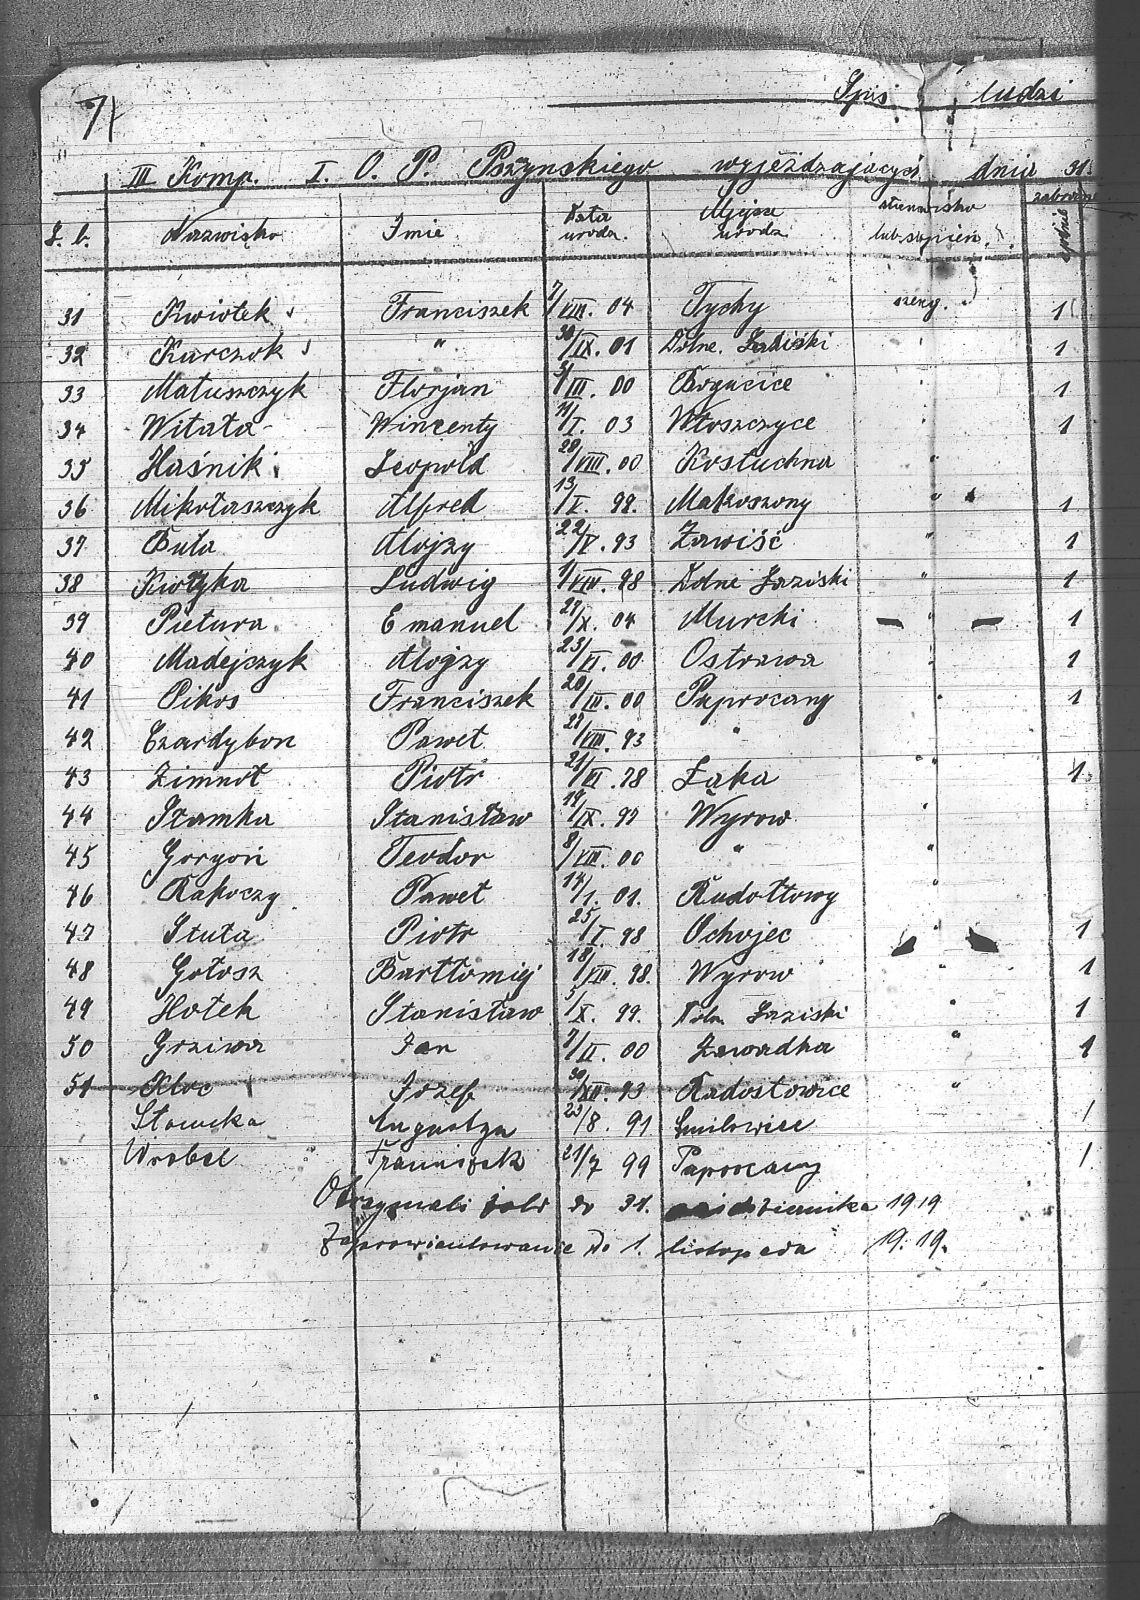 71
Spis ludzi
III Komp. I. O. P. Pszynskiego wyjeżdzających dnia 31
L. b. Nazwisko Imie Data urodz. Miejsc urodz. stanowisko lub stopień.
31 Kwiotek Franciszek 7/VIII. 04 Tychy szereg. 1
32 Karczok " 30/IX. 01 Dolne. Łaziski " 1
33 Matuszczyk Florjan 5/III. 00 Bogucice " 1
34 Witata Wincenty 11/I. 03 Włoszczyce " 1
35 Haśnik Leopold 28/VIII. 00 Kostuchna "
36 Mikołaszczyk Alfred 13/V. 99. Makoszony " 1
37 Buła Alojzy 22/V. 93 Zawiść " 1
38 Kotyka Ludwig 1/VIII. 98 Dolne Łaziski " 1
39 Pietura Emanuel 27/X. 04 Murcki — " — 1
40 Madejczyk Alojzy 23/VI. 00 Ostrawa " 1
41 Pikos Franciszek 20/III. 00 Paprocany " 1
42 Czardybon Paweł 27/VIII. 93 "
43 Zimnot Piotr 21/VI. 98 Łąka " 1
44 Szamka Stanisław 19/IX. 99 Wyrow "
45 Goryoń Teodor 8/VIII. 00 " "
46 Rakoczy Paweł 14/1. 01. Rudołtowy "
47 Stuta Piotr 25/I. 98 Ochojec " 1
48 Gołosz Bartłomiej 18/VIII. 98. Wyrow " 1
49 Hołek Stanisław 5/X. 99. Doln. Łaziski " 1
50 Grziwa Jan 7/II. 00 Zawadka " 1
51 Kloc Jozef 30/XII. 93 Radostowice "
Słowika Augustyn 23/8. 91 Smilowice 1
Wrobel Franciszek 21/7 99 Paprocany 1
Otrzymali żołd do 31. października 1919
Zaprowiantowanie do 1. listopada 19.19.